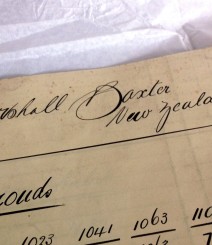 rshall Baxter
New Zeala
onds
1023 1041 1063 110